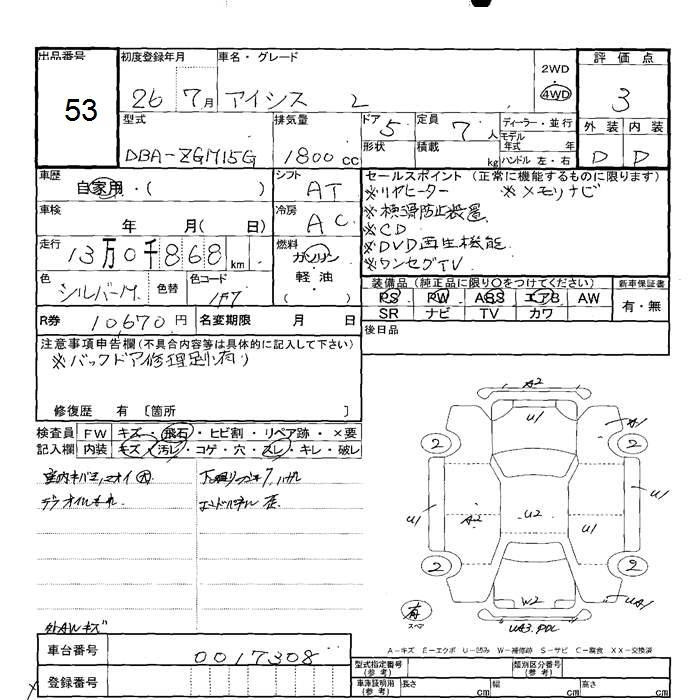 出品番号
53
初度登録年月
26 7月
車名・グレード
アイシス L
2WD
4WD
評価点
3
型式
DBA-ZGM15G
排気量
1800 cc
ドア 5
形状
定員 7 人
積載 kg
ディーラー・並行
モデル
年式 年
ハンドル 左・右
外装 内装
D D
車歴
自家用・( )
シフト
AT
セールスポイント (正常に機能するものに限ります)
※リヤヒーター ※メモリナビ
※横滑防止装置
※CD
※DVD再生機能
※ワンセグTV
車検
年 月( 日)
冷房
AC
走行
13万0千868 km
燃料
ガソリン
軽油
( )
色
シルバーM
色替
色コード
1F7
装備品 (純正品に限り○をつけてください)
新車保証書
PS PW ABS エアB AW
SR ナビ TV カワ
有・無
R券 10,670円 名変期限 月 日
後日品
注意事項申告欄(不具合内容等は具体的に記入して下さい)
※バックドア修理跡有り
修復歴 有 〔箇所 〕
検査員
記入欄
FW キズ・飛石・ヒビ割・リペア跡・×要
内装 キズ・汚レ・コゲ・穴・スレ・キレ・破レ
外AWキズ
A2
U1
A1
2
2
U1
A2
U2
U1
U1
2
2
W2
UA1
UA3.PDL
有
スペア
A-キズ E-エクボ U-凹み W-補修跡 S-サビ C-腐食 XX-交換済
車台番号
0017308
登録番号
型式指定番号
(参考)
類別区分番号
(参考)
車庫証明用
(参考)
長さ cm 幅 cm 高さ cm